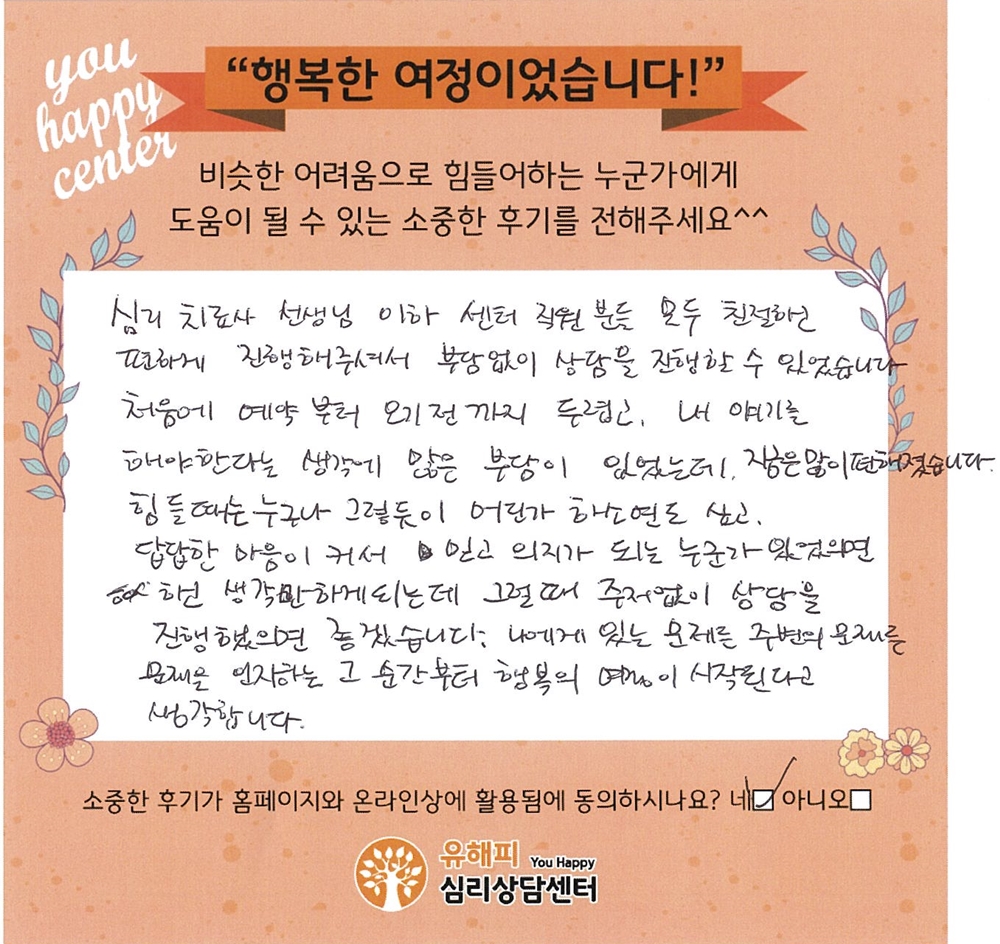 you
happy
center
“행복한 여정이었습니다!”
비슷한 어려움으로 힘들어하는 누군가에게
도움이 될 수 있는 소중한 후기를 전해주세요^^
심리 치료사 선생님 이하 센터 직원 분들 모두 친절하고
편하게 진행해주셔서 부담없이 상담을 진행할 수 있었습니다
처음에 예약 부터 오기 전 까지 두렵고, 내 얘기를
해야한다는 생각에 많은 부담이 있었는데, 지금은 많이 편해졌습니다.
힘들때는 누구나 그렇듯이 어딘가 하소연도 싶고,
답답한 마음이 커서 믿고 의지가 되는 누군가 있었으면
하는 생각만 하게되는데 그럴 때 주저없이 상담을
진행했으면 좋겠습니다. 나에게 있는 문제를 주변의 문제를
문제를 인지하는 그 순간부터 행복의 여정이 시작된다고
생각합니다.
소중한 후기가 홈페이지와 온라인상에 활용됨에 동의하시나요? 네☑ 아니오☐
유해피 You Happy
심리상담센터